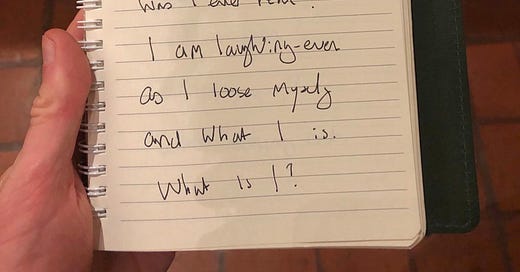 Was I ever
I am laughing-ever
as I loose Myself
and What I is.
What is I?